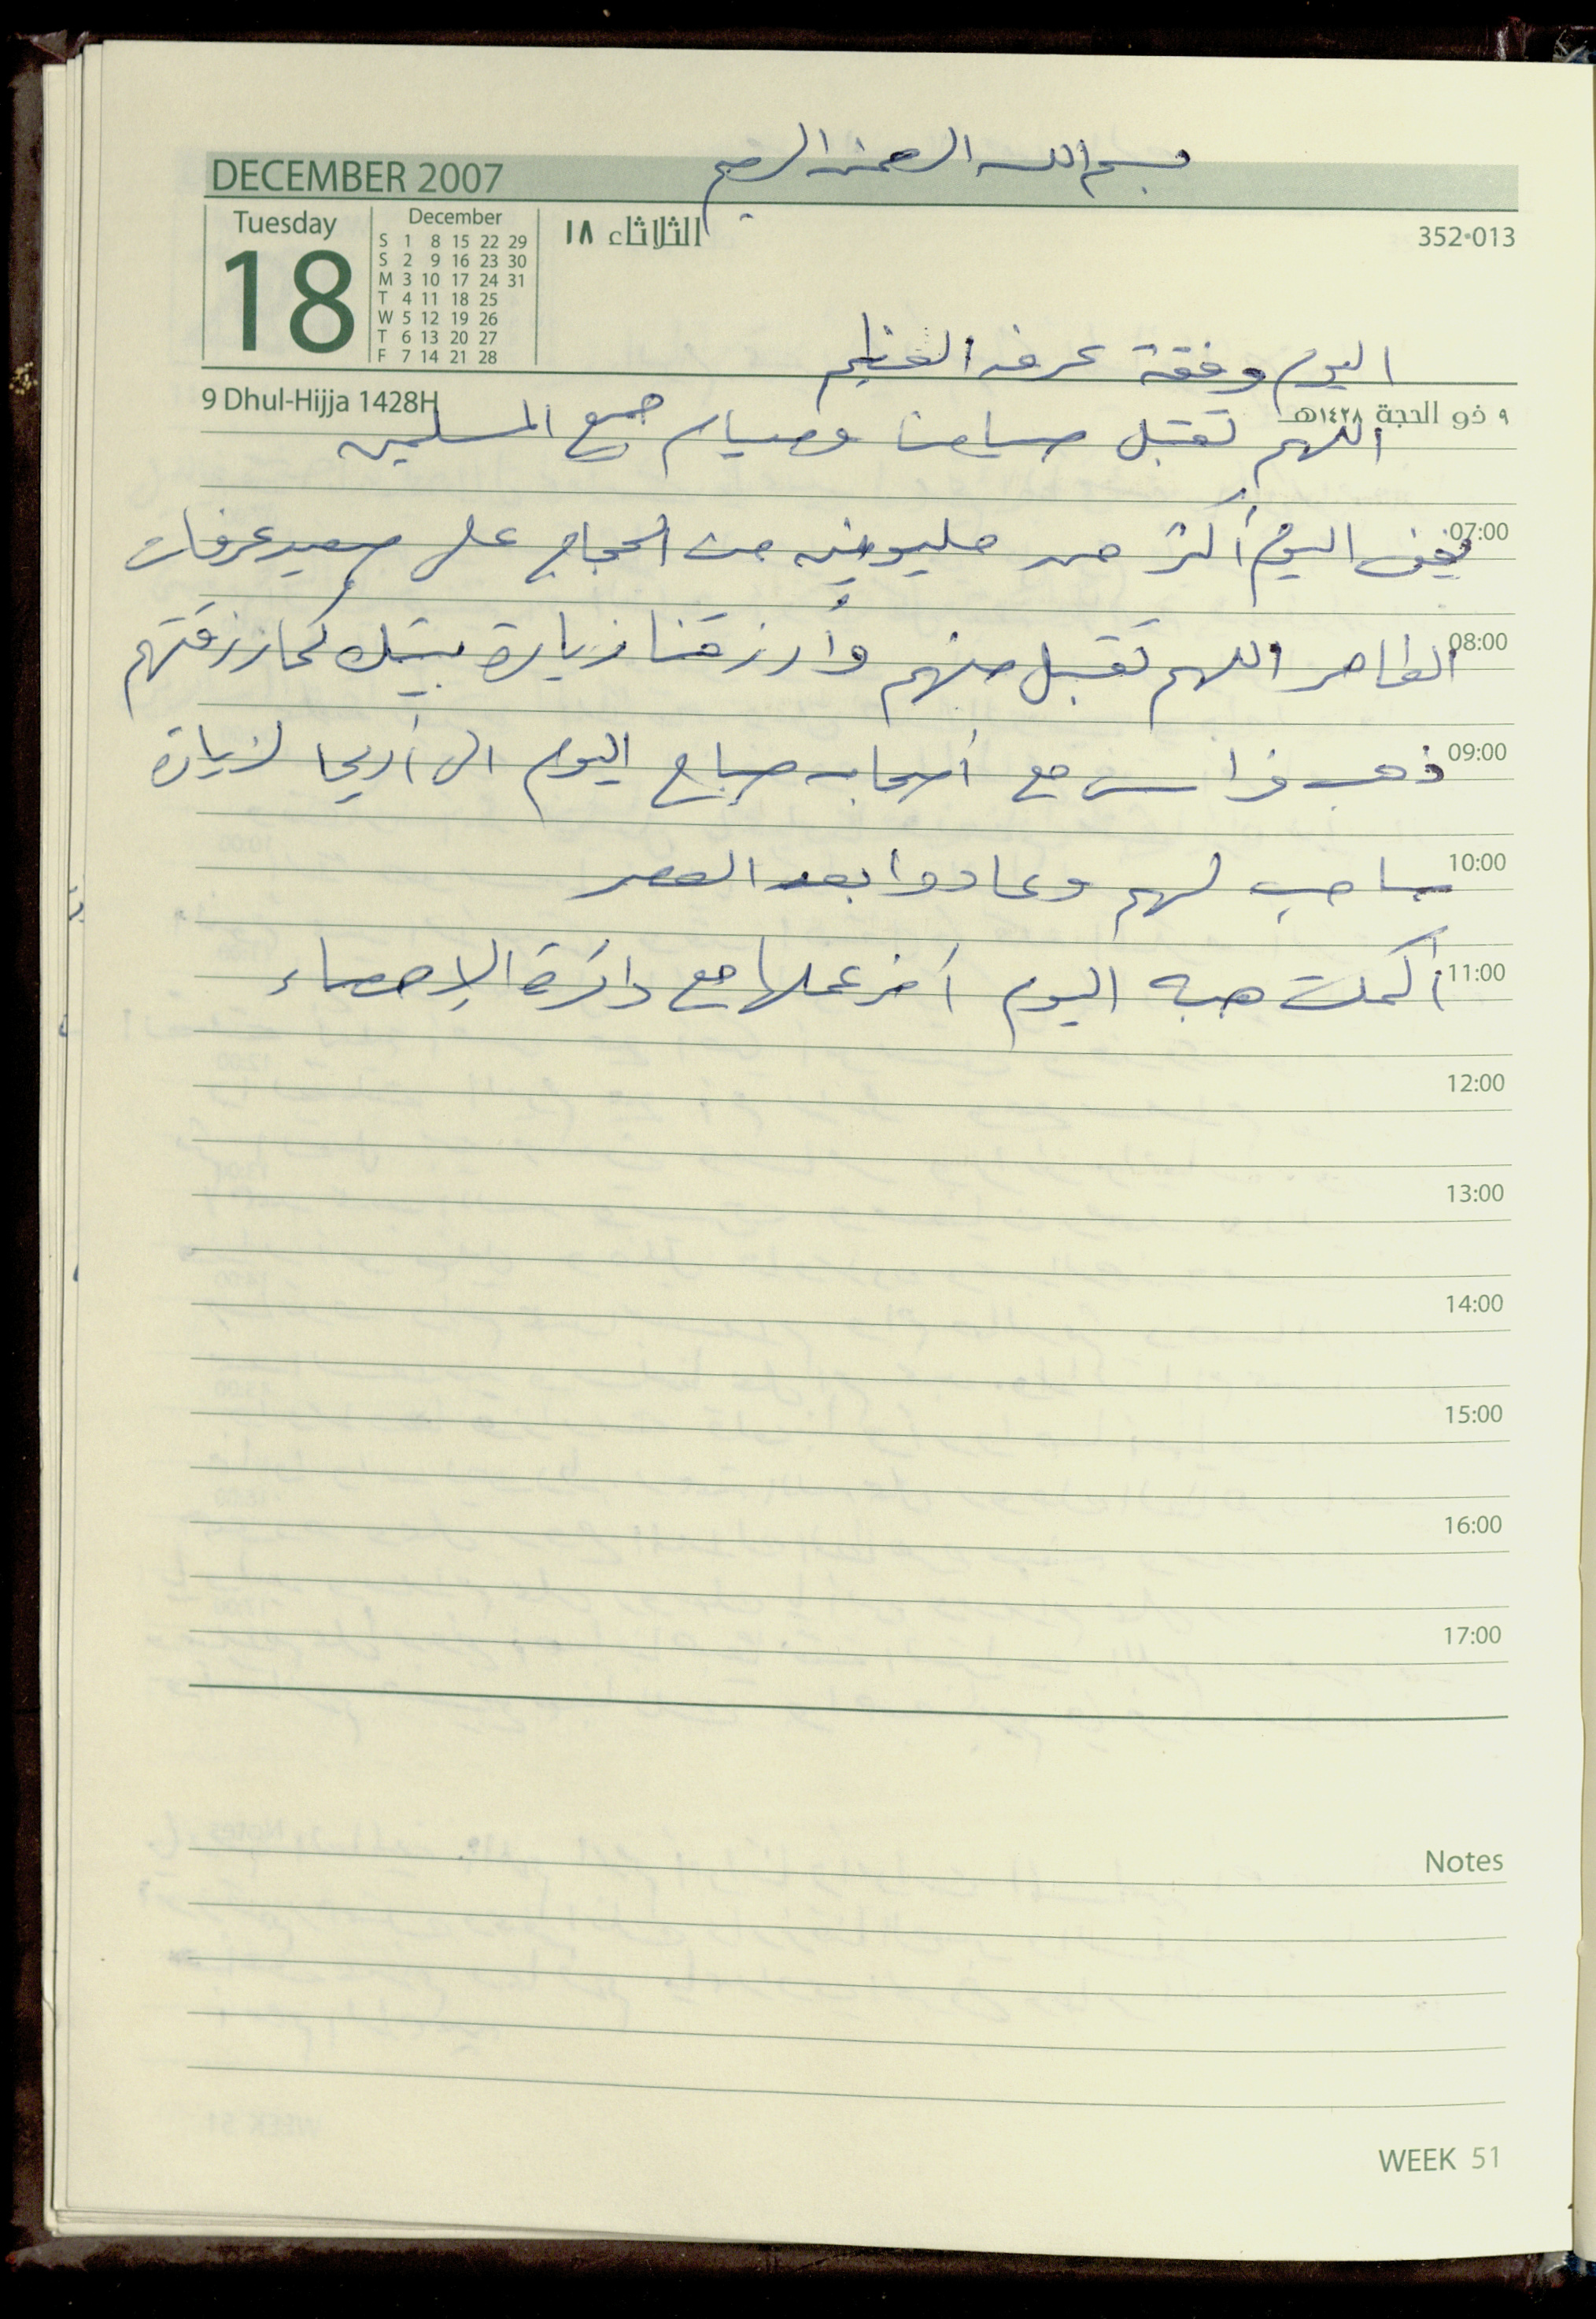 بسم الله الرحمن الرحيم
DECEMBER 2007
Tuesday
18
December
S 1 8 15 22 29
S 2 9 16 23 30
M 3 10 17 24 31
T 4 11 18 25
W 5 12 19 26
T 6 13 20 27
F 7 14 21 28
الثلاثاء ١٨
352•013
اليوم وقفة عرفه العظيم
9 Dhul-Hijja 1428H
٩ ذو الحجة ١٤٢٨هـ
اللهم تقبل صيامنا وصيام جميع المسلمين
07:00
يقف اليوم أكثر من مليونين من الحجاج على صعيد عرفات
08:00
الطاهر اللهم تقبل منهم وأرزقنا زيارة بيتك كما رزقتهم
09:00
ذهب فراس مع أصحابه صباح اليوم الى أريحا لزيارة
10:00
صاحب لهم وعادوا بعد العصر
11:00
أكملت هبه اليوم أخر عملها مع دائرة الإحصاء
12:00
13:00
14:00
15:00
16:00
17:00
Notes
WEEK 51